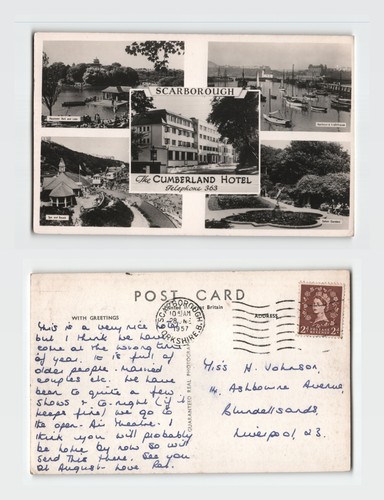 SCARBOROUGH
The CUMBERLAND HOTEL
Telephone 363
POST CARD
WITH GREETINGS
Britain
ADDRESS
GUARANTEED REAL PHOTOGRAPH
SCARBOROUGH
YORKSHIRE
1957
2D 2D
This is a very nice hotel
but I think we have
come at the wrong time
of year. It is full of
older people. married
couples etc. We have
been to quite a few
shows & to-night (if it
keeps fine) we go to
the open Air theatre. I
think you will probably
be home by now so will
send this there. See you
at August. Love
Miss H. Johnson,
14, Ashbourne Avenue,
Blundellsands,
Liverpool 23.